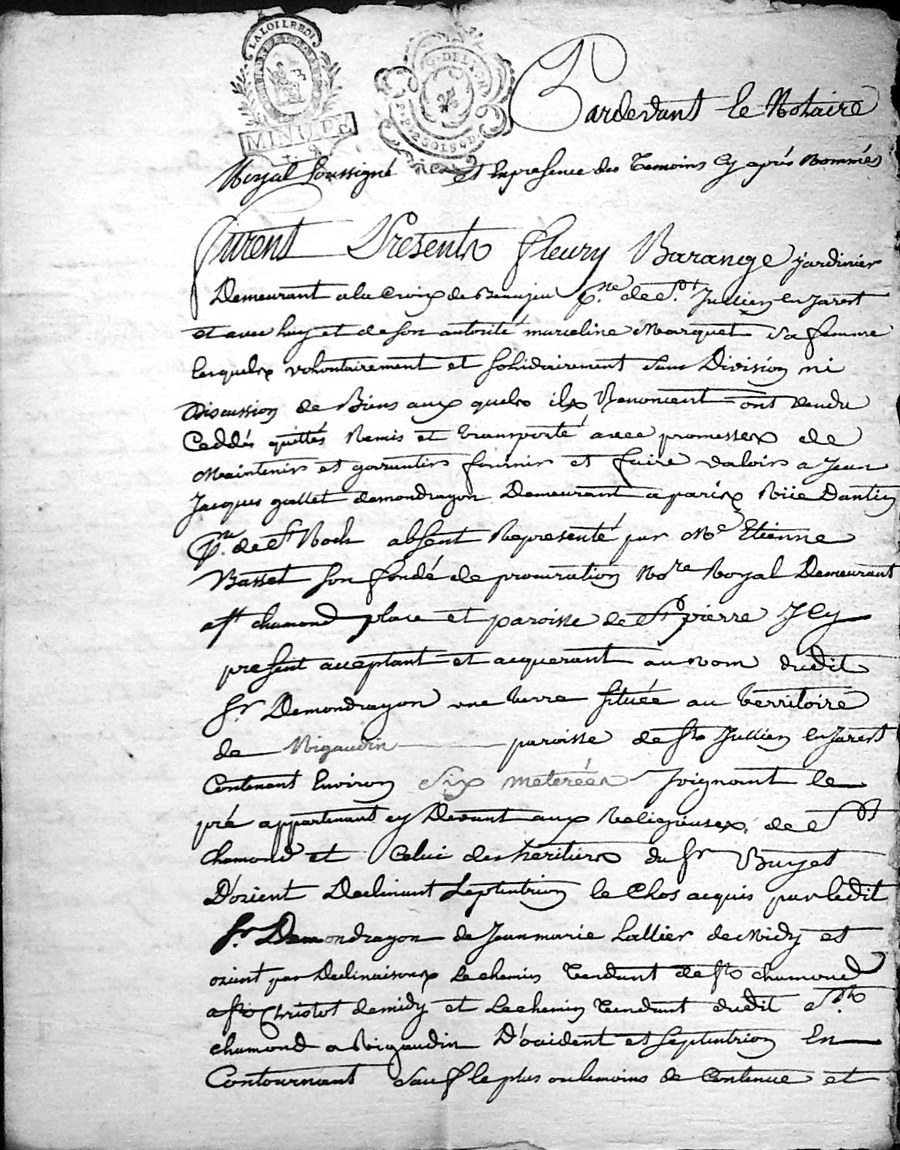 LA LOI LE ROI
MINUTE
G. DE LYON
Pardevant le Notaire
Royal soussigné et en presence des temoins cy après nommés
furent Presents fleury Barange jardinier
Demeurant a la Croix de Beaujeu p.ne de St Jullien en Jarest
et avec luy et de son autorité marceline Marquet sa femme
lesquels volontairement et solidairement sans Division ni
Discussion de Biens aux quels ils Renoncent ont vendu
Ceddés quittés Remis et transporté avec promesses de
Maintenir et garantir fournir et faire valoir a Jean
Jacques gallet demondragon Demeurant a paris Rüe Dantin
p.sse de St Roch absent Representé par Me Etienne
Basset son fondé de procuration Nore Royal Demeurant
a St chamond place et paroisse de St pierre Icy
present acceptant et acquerant au nom dudit
Sr. Demondragon une terre Située au territoire
de Rigaudin paroisse de St Jullien en Jarest
Contenant Environ Six meterées Joignant le
pré appartenant cy Devant aux Religieuses de St
chamond et Celui des héritiers du Sr Buyet
D'orient Declinant Septentrion le Clos acquis par ledit
Sr. Demondragon de Jean marie Lallier de Midy et
orient par Declinaisons le chemin tendant de St chamond
a St Christot de midy et Le chemin tendant dudit St
chamond a Rigaudin D'occident et Septentrion En
Contournant Sauf le plus ou le moins de Contenue et